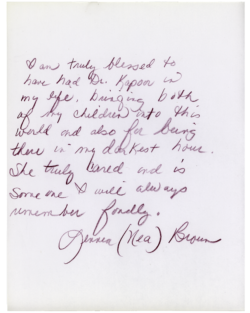 I am truly blessed to
have had Dr. Kapoor in
my life. Bringing both
of my children into this
world and also for being
there in my darkest hour.
She truly cared and is
someone I will always
remember fondly.
(Nea) Brown